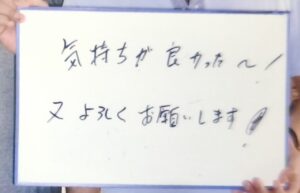 気持ちが良かった〜!
又よろしくお願いします!